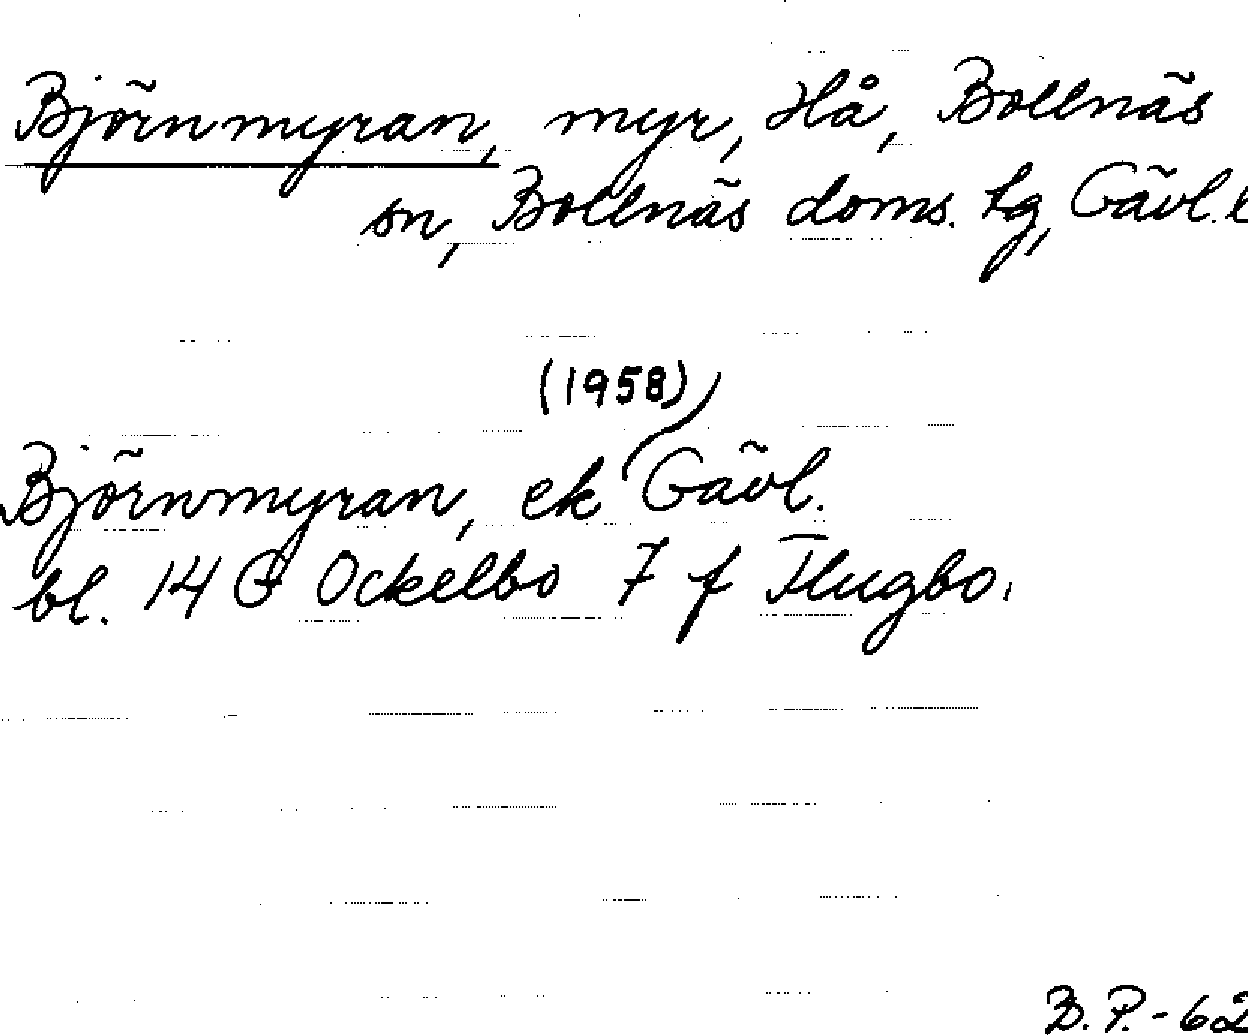 Björnmyran, myr, Hå, Bollnäs
sn, Bollnäs doms. tg, Gävl. l
(1958)
Björnmyran, ek Gävl.
bl. 14 G Ockelbo 7 f Flugbo.
B.P.-62